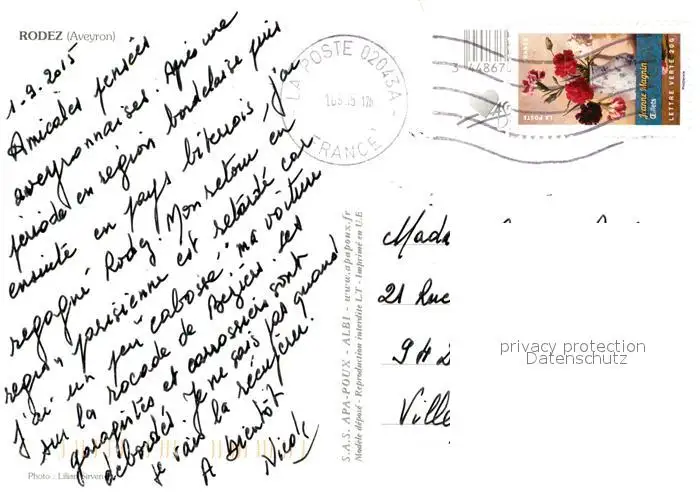 RODEZ (Aveyron)
1.9.2015
Amicales pensées
aveyronnaises. Après une
période en région bordelaise puis
ensuite en pays biterrois j'ai
regagné Rodez. Mon retour en
région parisienne est retardé car
j'ai un peu "cabossé" ma voiture
sur la rocade de Béziers. Les
garagistes et carrossiers sont
débordés. Je ne sais pas quand
je vais la récupérer.
A bientôt
Nicole
Photo : Lilian Sirven
S.A.S. APA-POUX - ALBI - www.apapoux.fr
Modèle déposé - Reproduction interdite L.T - Imprimé en U.E
LA POSTE 02043A
FRANCE
FRANCE
LA POSTE
Jeanne Magnin
Œillets
LETTRE VERTE 20G
Mada
21 Rue
94
Ville
privacy protection
Datenschutz